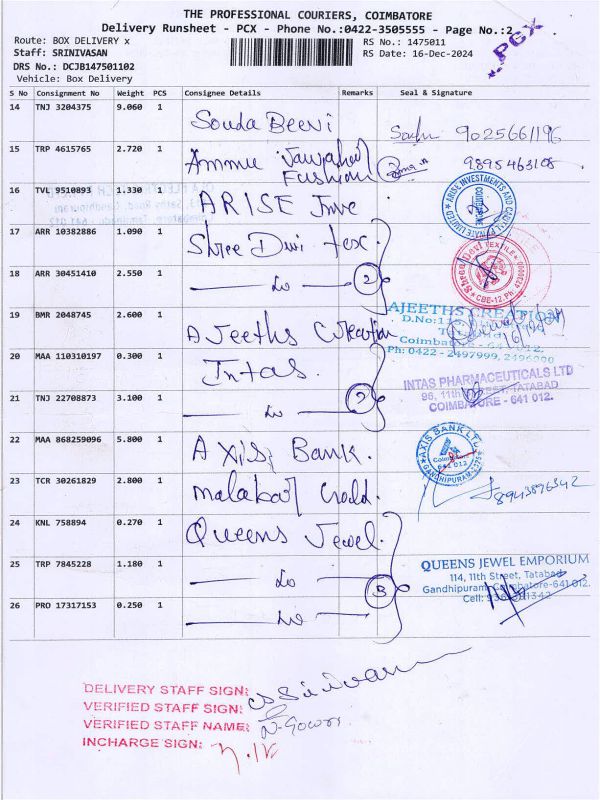 THE PROFESSIONAL COURIERS, COIMBATORE
Delivery Runsheet - PCX - Phone No.:0422-3505555 - Page No.:2
PCX
Route: BOX DELIVERY x
RS No.: 1475011
Staff: SRINIVASAN
RS Date: 16-Dec-2024
DRS No.: DCJB147501102
Vehicle: Box Delivery
S No Consignment No Weight PCS Consignee Details Remarks Seal & Signature
14 TNJ 3204375 9.060 1 Souda Beevi 9025661196
15 TRP 4615765 2.720 1 Ammu Fashion 9895463108
16 TVL 9510893 1.330 1 ARISE
ARISE INVESTMENTS AND CAPITAL PRIVATE LIMITED
COIMBATORE
17 ARR 10382886 1.090 1 Shree Devi tex
Shree Devi TEXTILE
CBE-12
18 ARR 30451410 2.550 1 2
19 BMR 2048745 2.600 1 Ajeeths Creation
AJEETHS CREATION
Coimbatore - 641 012.
Ph: 0422 - 2497999, 2496000
20 MAA 110310197 0.300 1 Intas.
INTAS PHARMACEUTICALS LTD
96, 11th STREET, TATABAD
COIMBATORE - 641 012.
21 TNJ 22708873 3.100 1 2
22 MAA 868259096 5.800 1 Axis Bank.
AXIS BANK LTD
Coimbatore
641 012
GANDHIPURAM
23 TCR 30261829 2.800 1 Malabar Gold. 8943896342
24 KNL 758894 0.270 1 Queens Jewel.
25 TRP 7845228 1.180 1
QUEENS JEWEL EMPORIUM
114, 11th Street, Tatabad
Gandhipuram, Coimbatore-641 012.
Cell:
26 PRO 17317153 0.250 1
DELIVERY STAFF SIGN: Srinivasan
VERIFIED STAFF SIGN:
VERIFIED STAFF NAME:
INCHARGE SIGN: